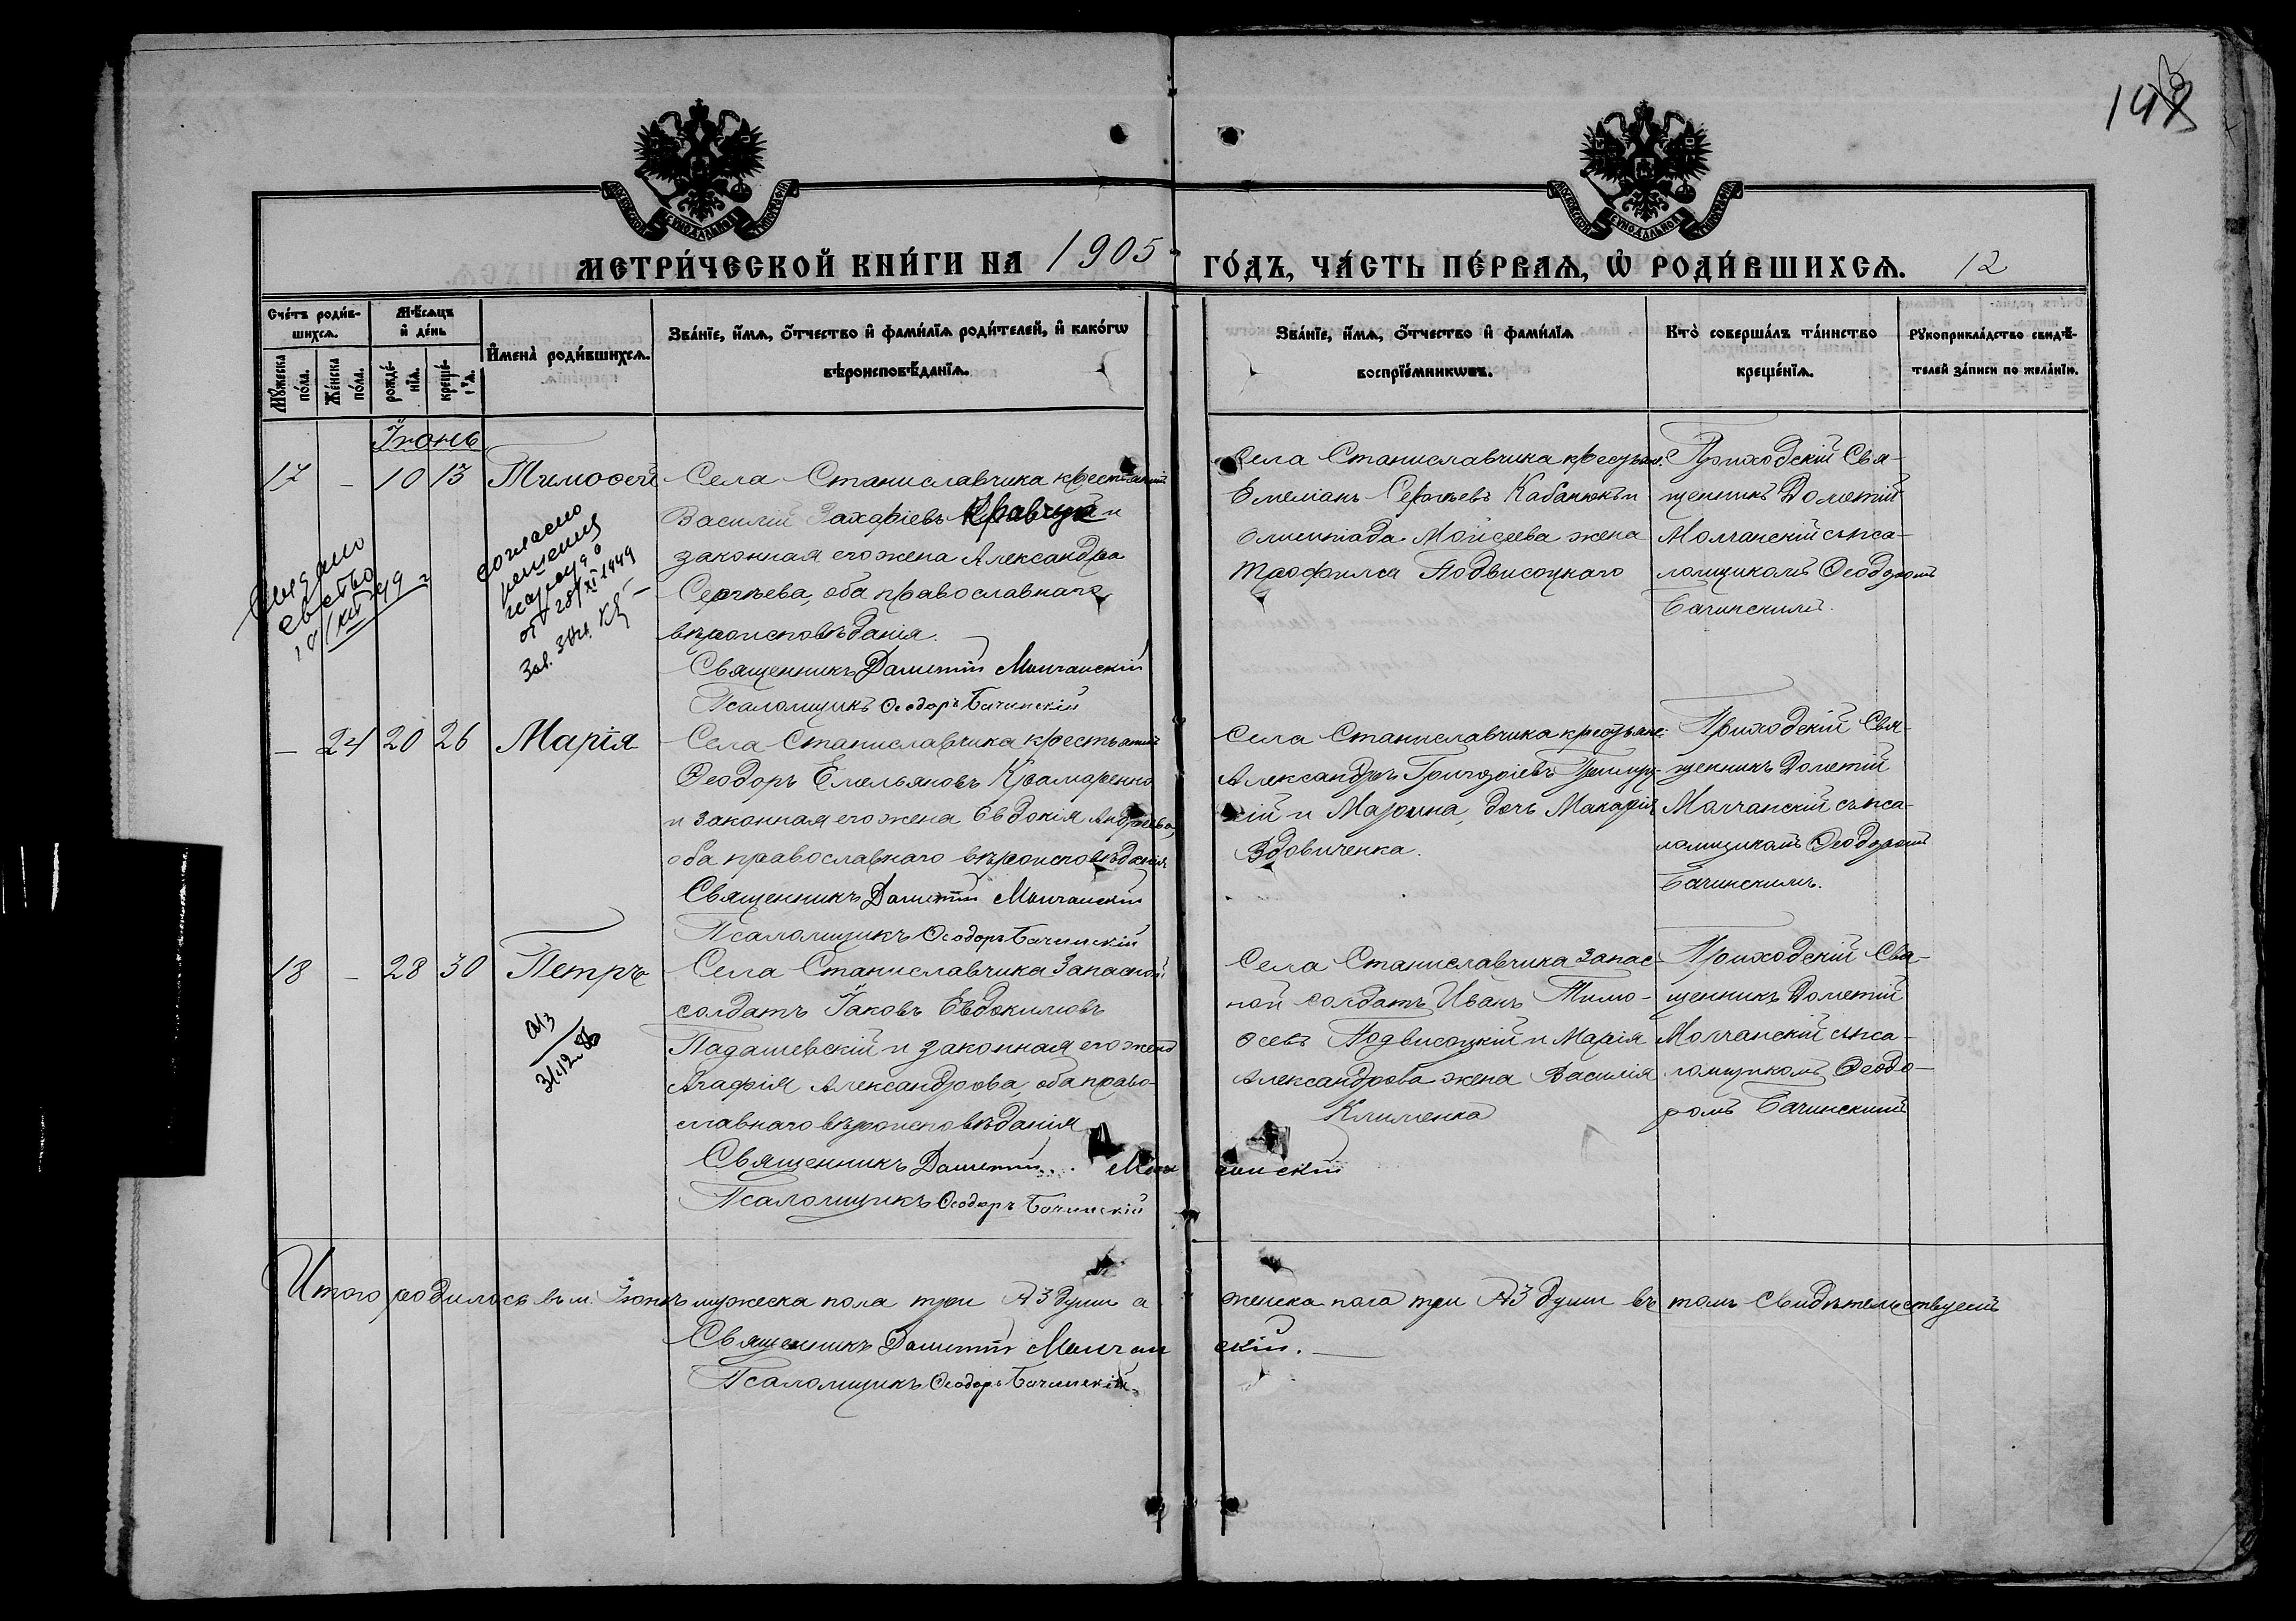 148
МЕТРИ́ЧЕСКОЙ КНИ́ГИ НА 1905 ГО́ДЪ, ЧА́СТЬ ПЕ́РВАѦ, Ѡ҆ РОДИ́ВШИХСѦ. 12
Сче́тъ роди́в-
шихсѧ.
Мꙋ́жеска по́ла.
Же́нска по́ла.
Мѣ́сѧцъ
и҆ де́нь
рожде́-
нїѧ.
креще́-
нїѧ.
И҆мена̀ роди́вшихсѧ.
Зва́нїе, и҆́мѧ, ѻ҆́тчество и҆ фами́лїѧ роди́телей, и҆ како́гѡ
вѣроисповѣ́данїѧ.
Зва́нїе, и҆́мѧ, ѻ҆́тчество и҆ фами́лїѧ
воспрїе́мникѡвъ.
Кто̀ соверша́лъ та́инство
креще́нїѧ.
Рꙋкоприкла́дство свидѣ́-
телей за́писи по жела́нїю.
Іюнь
17 - 10 13 Тимоѳей
Села Станиславчика крестьянинъ
Василій Захаріевъ Кравчук и
законная его жена Александра
Сергѣева, оба православнаго
вѣроисповѣданія.
Священникъ Дометій Молчанскій
Псаломщикъ Ѳеодоръ Бачинскій
Села Станиславчика крестьян.
Емеліанъ Сергѣевъ Кабанюкъ и
Олимпіада Моисеева жена
Трофима Подвисоцкаго
Приходскій Свя-
щенникъ Дометій
Молчанскій съ пса-
ломщикомъ Ѳеодоромъ
Бачинскимъ.
согласно
решения
нарсуда
от 28/XI 1949
Зав.
Выдано
св-ство
49 г
- 24 20 26 Марія
Села Станиславчика крестьянинъ
Ѳеодоръ Емельяновъ Крамаренко
и законная его жена Евдокія Андреева,
оба православнаго вѣроисповѣданія
Священникъ Дометій Молчанскій
Псаломщикъ Ѳеодоръ Бачинскій
Села Станиславчика крестьяне:
Александръ Григоріевъ
и Марина, дочь Макарія
Вдовиченка.
Приходскій Свя-
щенникъ Дометій
Молчанскій съ пса-
ломщикомъ Ѳеодоромъ
Бачинскимъ.
18 - 28 30 Петръ
Села Станиславчика Запасной
солдатъ Іаковъ Евдокимовъ
Падашевскій и законная его жена
Агафія Александрова, оба право-
славнаго вѣроисповѣданія
Священникъ Дометій Молчанскій
Псаломщикъ Ѳеодоръ Бачинскій
Села Станиславчика Запас-
ной солдатъ Иванъ Тимо-
ѳеевъ Подвисоцкій и Марія
Александрова жена Василія
Клименка
Приходскій Свя-
щенникъ Дометій
Молчанскій съ пса-
ломщикомъ Ѳеодо-
ромъ Бачинскимъ
Итого родилось въ м. Іюнѣ мужеска пола три 3 души а женска пола три 3 души въ томъ свидѣтельствуемъ
Священникъ Дометій Молчанскій.
Псаломщикъ Ѳеодоръ Бачинскій.